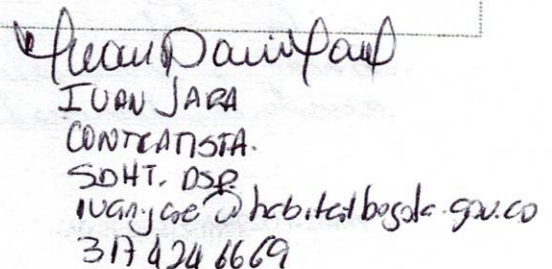 Ivan David Jara
IVAN JARA
CONTRATISTA.
SDHT. DSP.
ivan.jara@habitatbogota.gov.co
317 424 6669